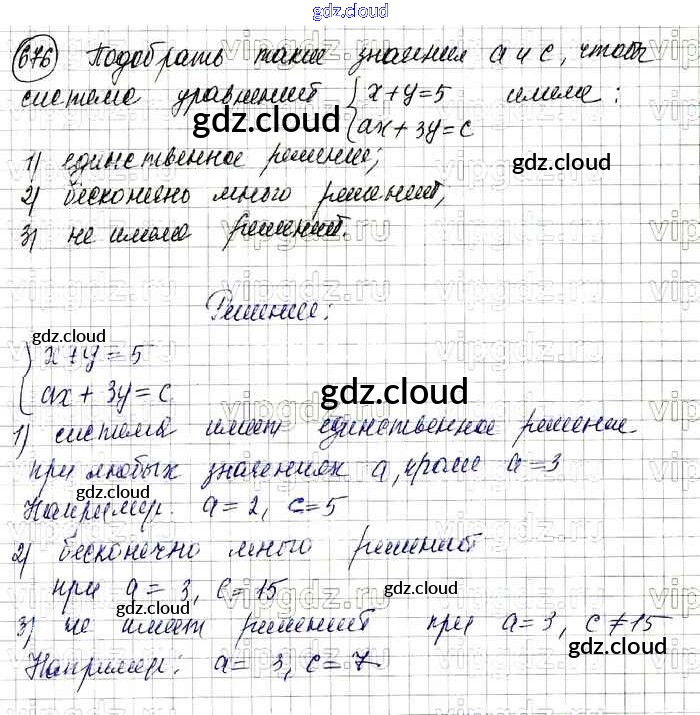 gdz.cloud
676 Подобрать такие значения a и c, чтобы
система уравнений { x+y=5 имела:
{ ax+3y=c
gdz.cloud
gdz.cloud
1) единственное решение;
2) бесконечно много решений;
3) не имела решений.
Решение:
gdz.cloud
{ x+y=5
{ ax+3y=c
gdz.cloud
1) система имеет единственное решение
при любых значениях a, кроме a=3
gdz.cloud
gdz.cloud
Например: a=2, c=5
2) бесконечно много решений
при a=3, c=15
gdz.cloud
gdz.cloud
3) не имеет решений при a=3, c≠15
gdz.cloud
Например: a=3, c=7